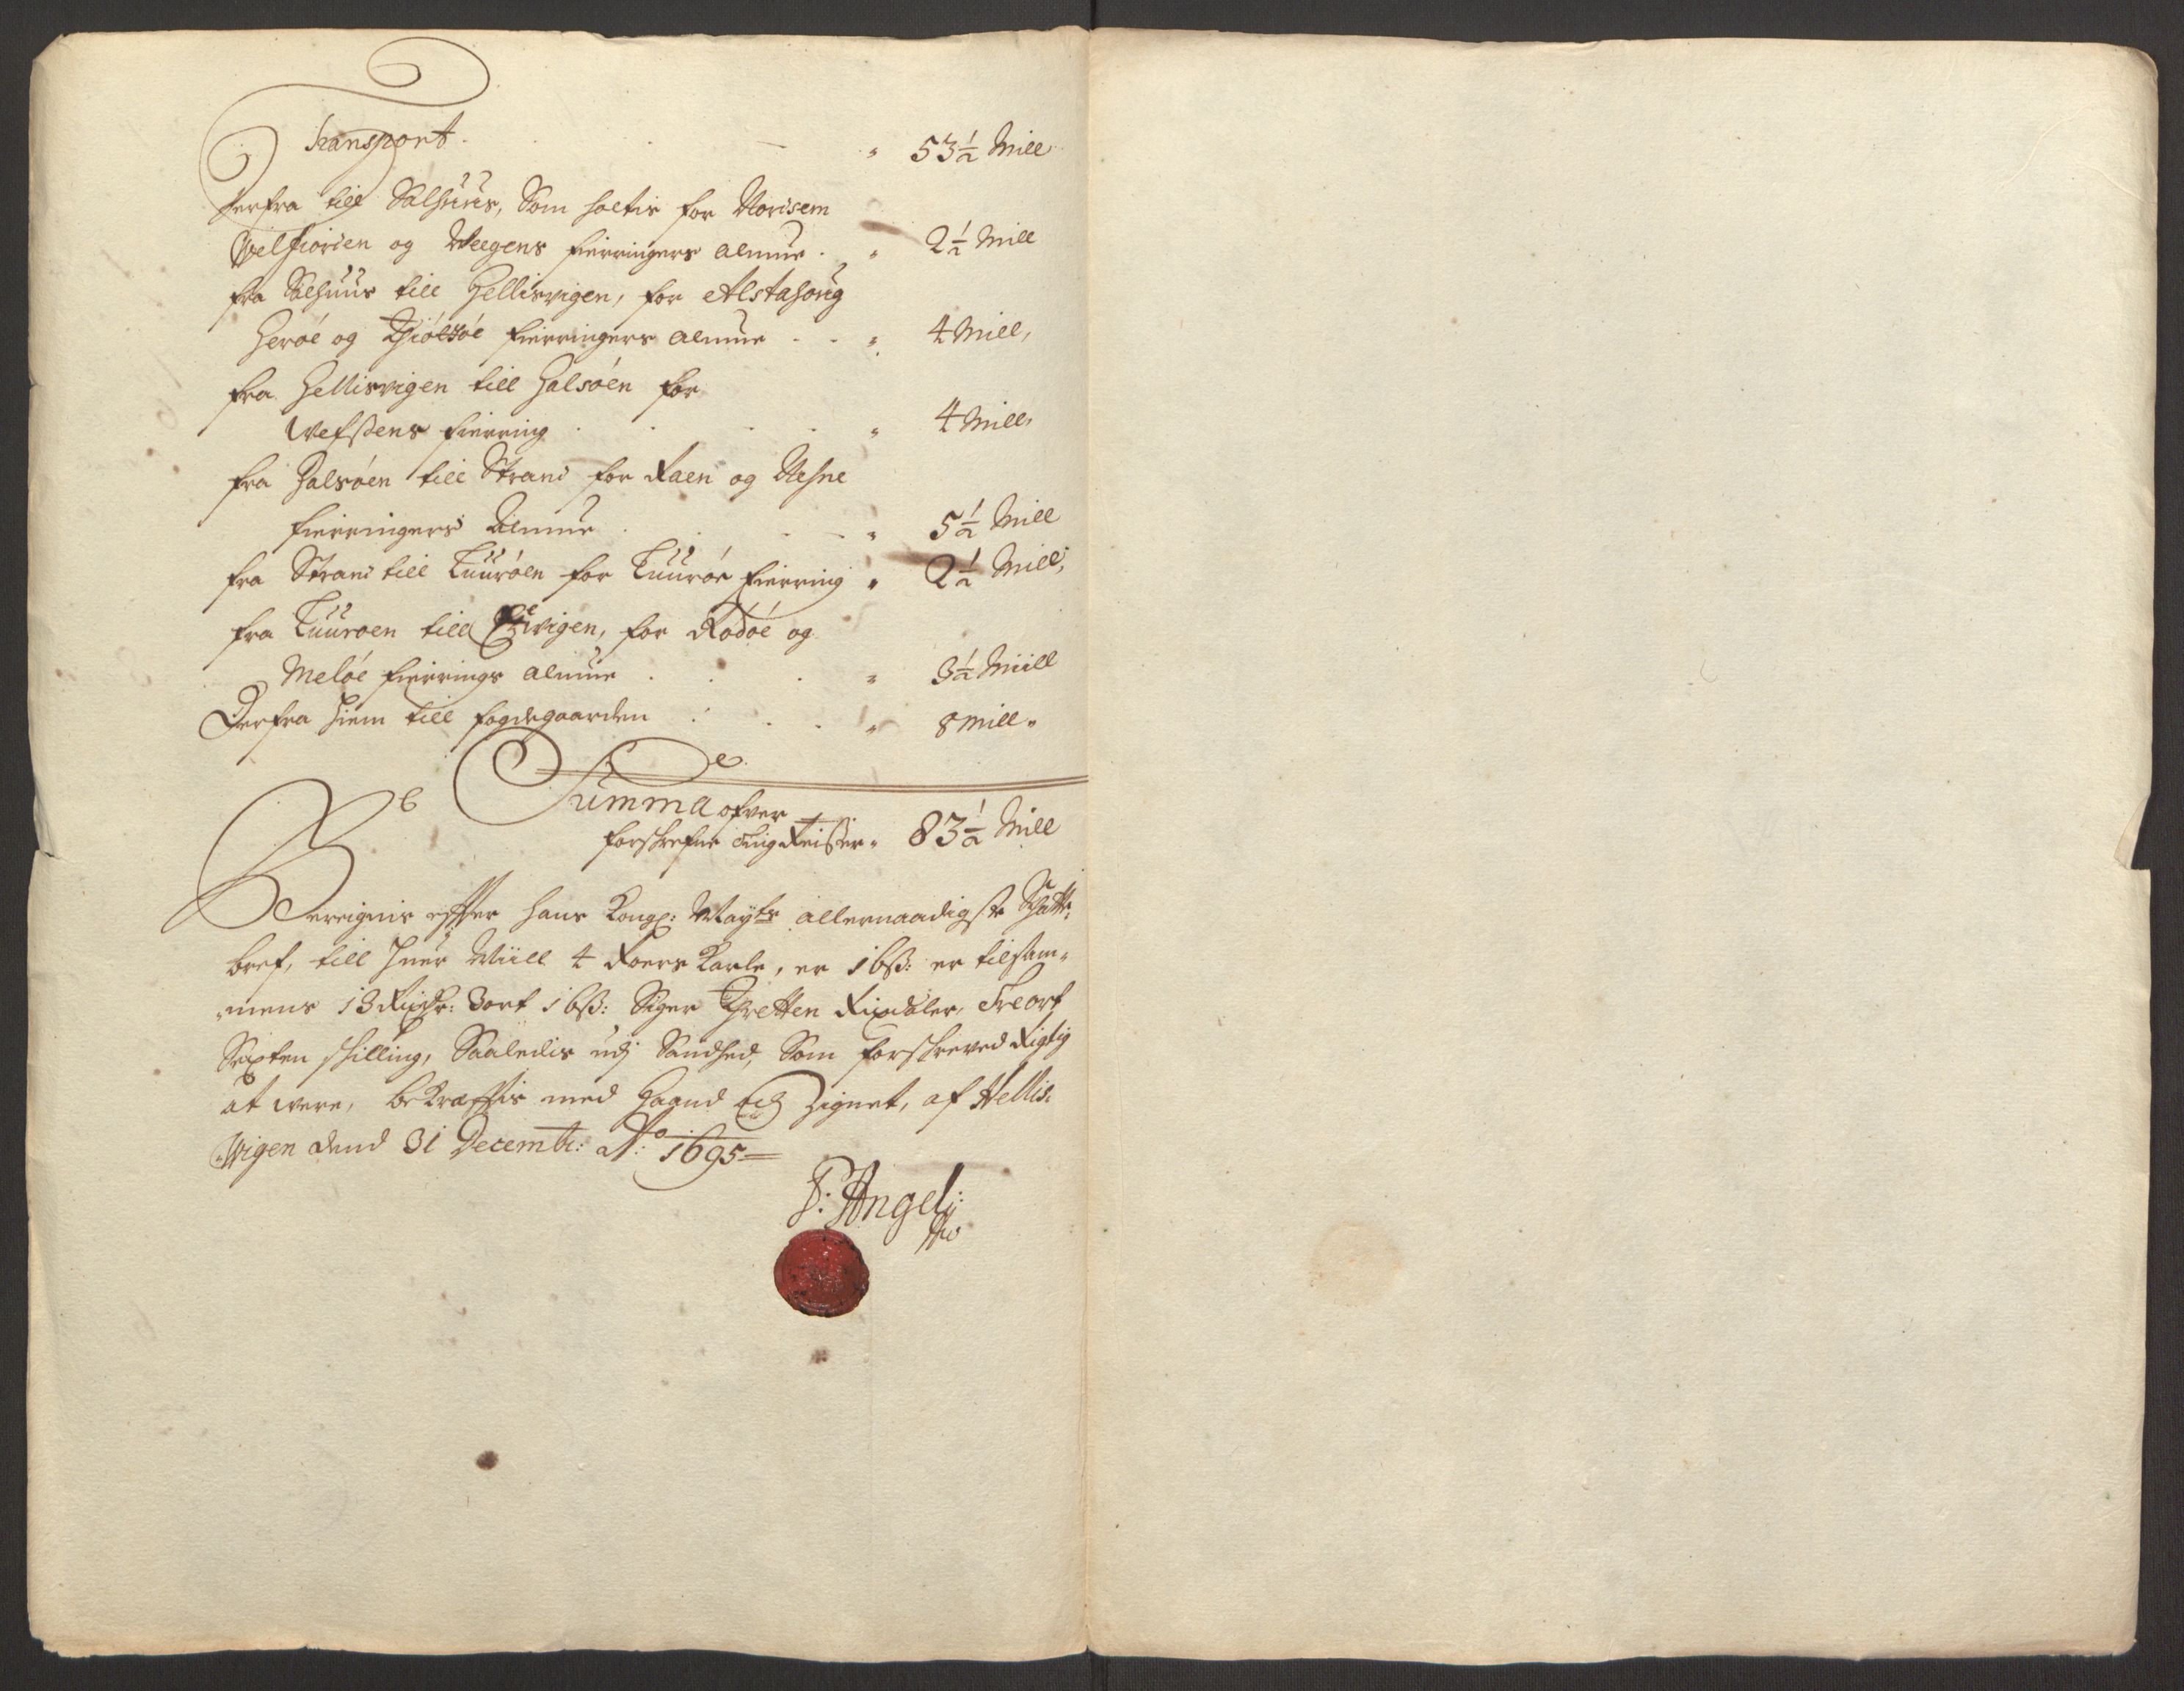 Transport. „ 53½ Mill
Derfra till Salhuus, Som holtis for Norisem
Welfiorden og Weegens fierringers almue. „ 2½ Mill
fra Salhuus till Hellisvigen, for Alstahoug
Herøe og Thiøtøe fierringers almue . . „ 4 Mill,
fra Hellisvigen till Halsøen for
Wefsens fierring . . . „ 4 Mill,
fra Halsøen till Strand for Raen og Nesne
fierringers Almue . . . „ 5½ Mill
fra Strand till Luurøen for Luurøe fierring „ 2½ Mill,
fra Luurøen till for Rødøe og
Meløe fierrings almue . . . „ 3½ Miill
Derfra hiem till fogdegaarden . . . „ 8 Mill„
Summa ofver
forskrefne ting Reisser„ 83½ Mill
Bereignis efter hans Kongl: Mayts allernaadigste Skatte„
bref, till huer Miill 4 Roers Karle, er 16ß: er tilsam„
„mens 13 Rixdr: 3ort 16ß: Siger Thretten Rixdaler, Tre ort
Sexten skilling, Saaledis udj Sandhed, Som forskreved Rigtig
at were, bekræftis med Haand og Zignet, af Hellis„
„Wigen dend 31 Decembr: Ao: 1695
P: Angel: